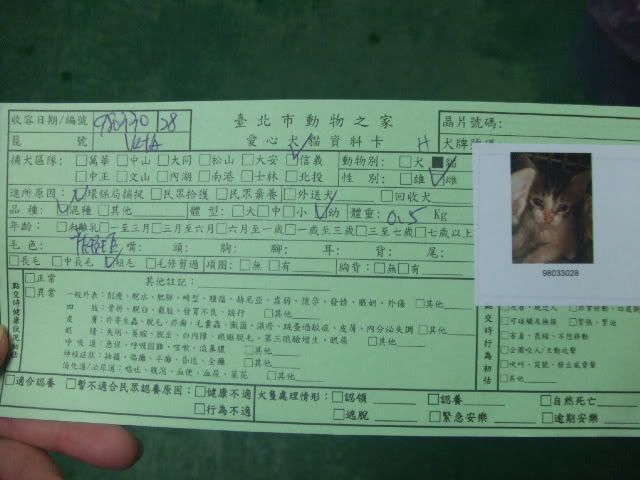 收容日期/編號 980330 28 臺北市動物之家 晶片號碼:
籠號 愛心犬貓資料卡 犬牌號碼
捕犬區隊: □萬華 □中山 □大同 □松山 □大安 □信義 動物別: □犬 ■貓
□中正 □文山 □內湖 □南港 □士林 □北投 性別: □雄 □雌
進所原因: □環保局捕捉 □民眾拾獲 □民眾棄養 □外送犬 □回收犬
品種: □混種 □其他 體型: □大 □中 □小 □幼 體重: 0.5 Kg
年齡: □未離乳 □一至三月 □三月至六月 □六月至一歲 □一歲至三歲 □三至七歲 □七歲以上
毛色: 嘴: 頭: 胸: 腳: 耳: 背: 尾:
□長毛 □中長毛 □短毛 □毛修剪過 項圈: □無 □有 胸背: □無 □有
98033028
點交時健康狀況初估
□正常 其他註記:
□異常 一般外表: 削瘦、脫水、肥胖、畸型、腫瘤、赫尼亞、虛弱、懷孕、發情、脹奶、外傷 □其他
四肢: 骨折、脫臼、截肢、發育不良、跛行 □其他
皮膚: 外寄生蟲、脫毛、疥癬、毛囊蟲、黴菌、濕疹、跳蚤過敏症、皮屑、內分泌失調 □其他
眼睛: 失明、萎縮、脫出、白內障、眼瞼脫毛、第三眼瞼增生、眼屎 □其他
呼吸道: 急促、呼吸困難、咳嗽、流鼻膿 □其他
神經症狀: 抽搐、偏癱、半癱、昏迷、全癱 □其他
消化道/泌尿道: 嘔吐、腹瀉、血便、血尿、菜花 □其他
點交時行為初估
□可碰觸及撫摸 □緊張、緊迫
□害羞、畏縮、不想移動
□企圖咬人/主動攻擊
□吠叫、低吼、發出威脅聲
□其他
□適合認養 □暫不適合民眾認養原因: □健康不適 犬隻處理情形: □認領 □認養 □自然死亡
□行為不適 □逃脫 □緊急安樂 □逾期安樂